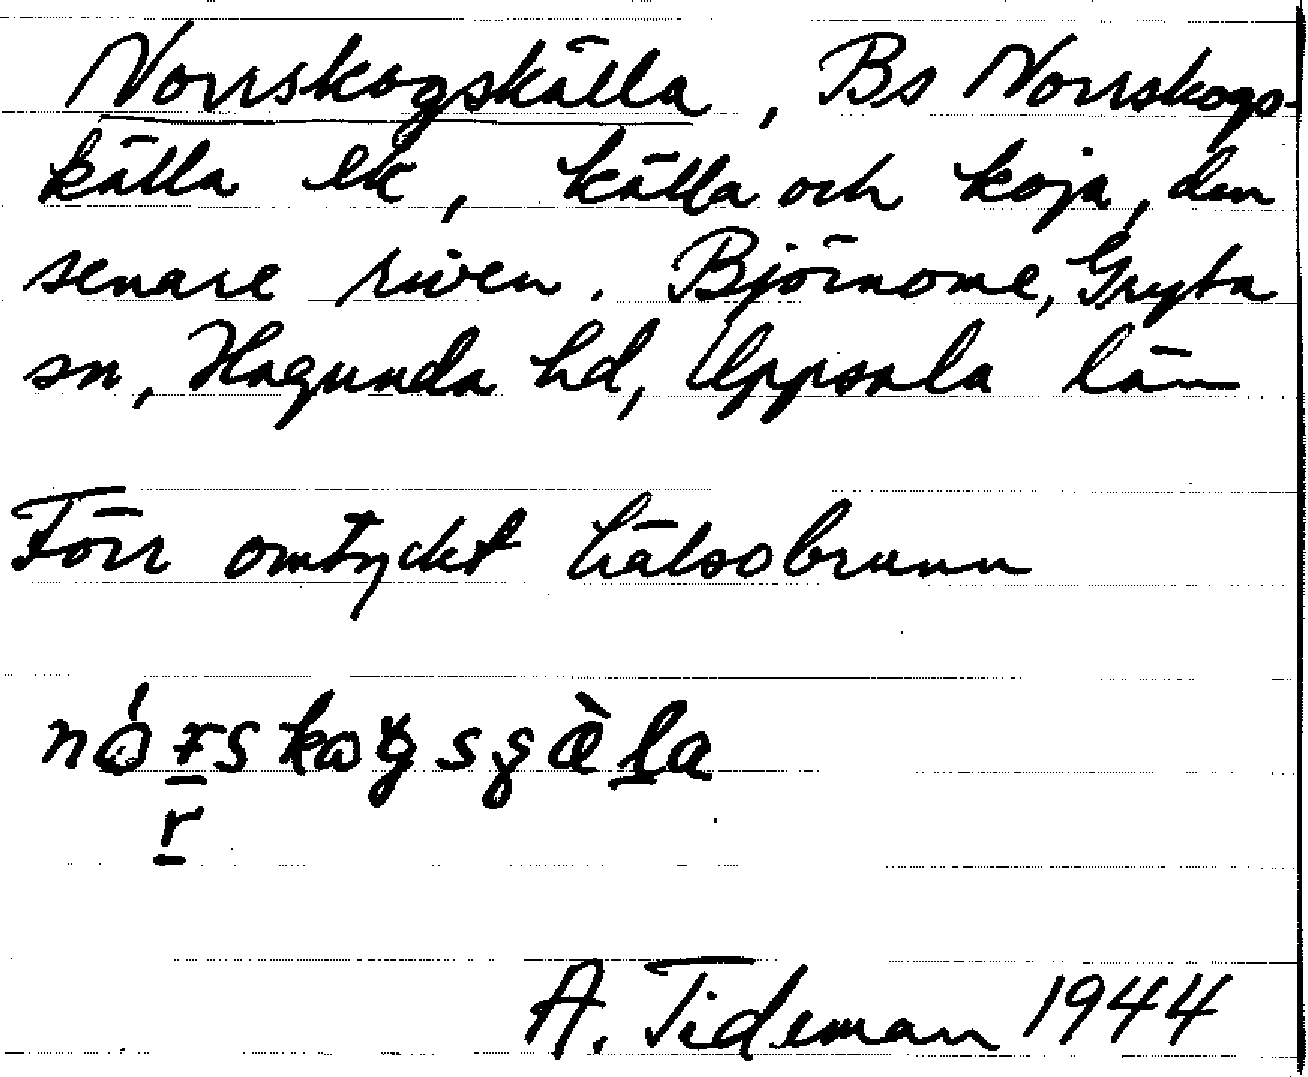 Norrskogskälla, Bs Norrskogs-
källa ek, källa och koja, den
senare riven. Björnome, Gryta
sn, Hagunda hd, Uppsala län
Förr omtyckt hälsobrunn
A. Tideman 1944